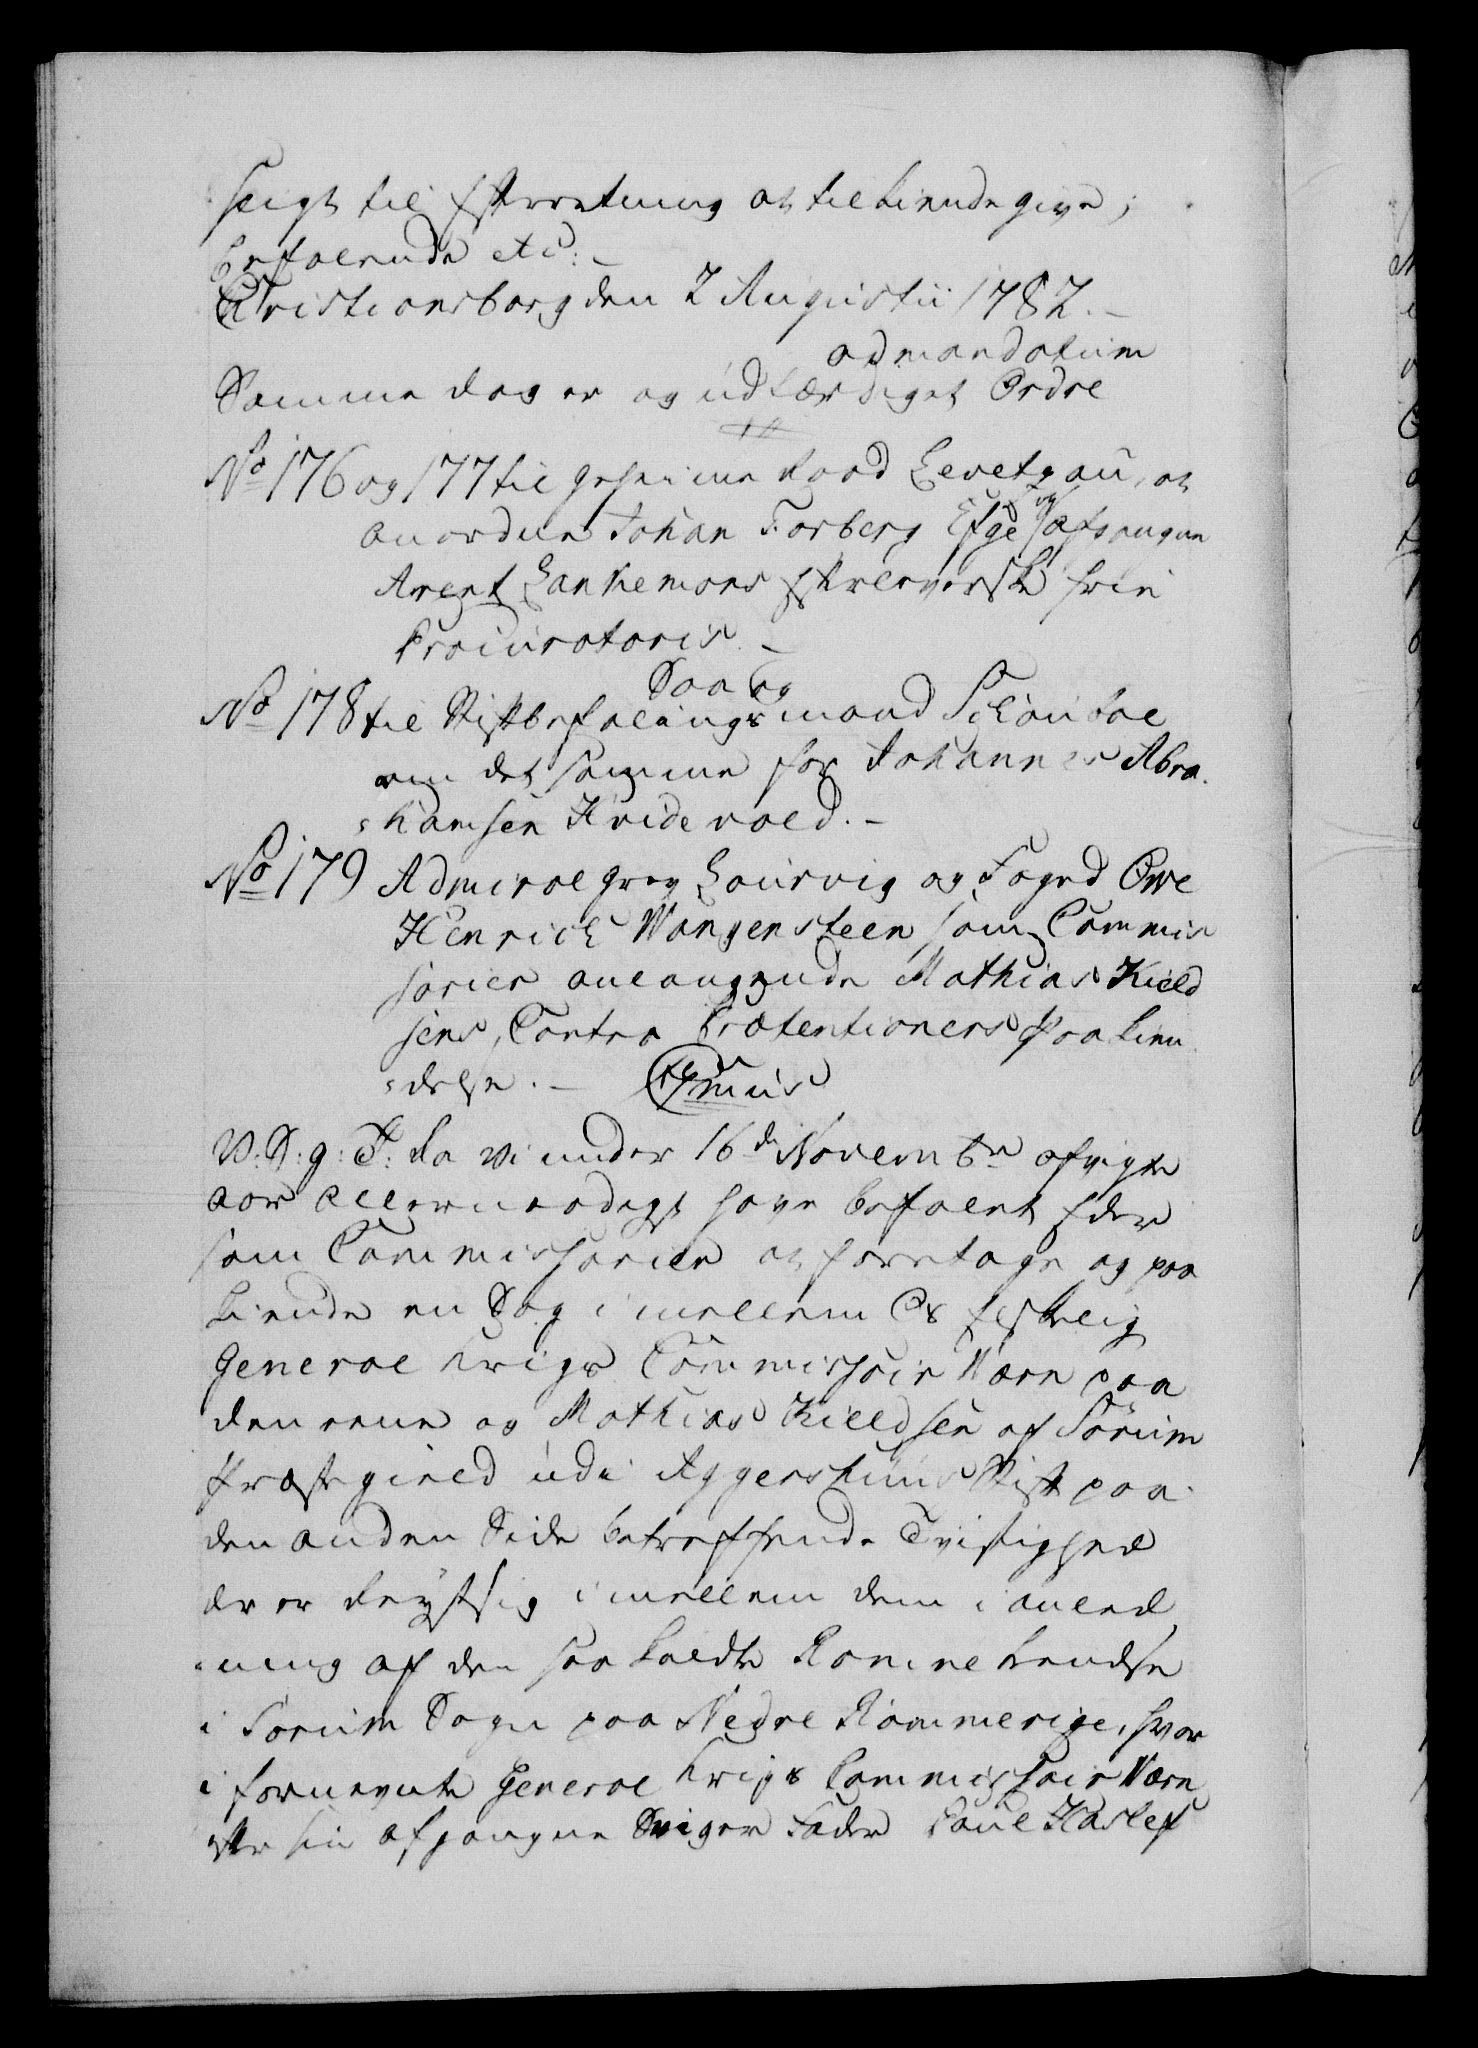 seigt til Efterretning at tilkiende give;
Befalende etc: –
Christiansborg den 2 Augustii 1782. –
ad mandatum
Samme dag er og udfærdiget Ordre
No 176 og 177 til geheime Raad Levetzau, at
anordne Johan Forberg Efge og afgangne
Arent Lankemans Efterleverske frie
Procuratoris. –
No 178 til Stiftbefalingsmand Schouboe
om det samme for Johannes Abra-
hamsen Hvidevold. –
No 179 Admiral greg Laurvig og Foged Owe
Henrich Wangensteen som Commis
sarier anlangende Mathias Kield
sens, Contra Prætentioners Paakien-
delse. –
V: S: g: T: da vi under 16de Novembr afvigte
aar allernaadigst have befalet Eder
som Commissarier at foretage og paa
kiende en Sag imellem Os elskelig
General Krigs Commissair Nærn paa
den eene og Mathias Kieldsen af Sørum
Præstegield udi Aggershuus Stift paa
den anden Side betreffende Tvistighed
der er reyst sig imellem dem i anled
ning af den saa kaldte
i Sørum Sogn paa Nedre Rommerige, hvor
i fornevnte General Krigs Commissair Nærn
efter sin afgangne Sviger Fader Poul Haslef